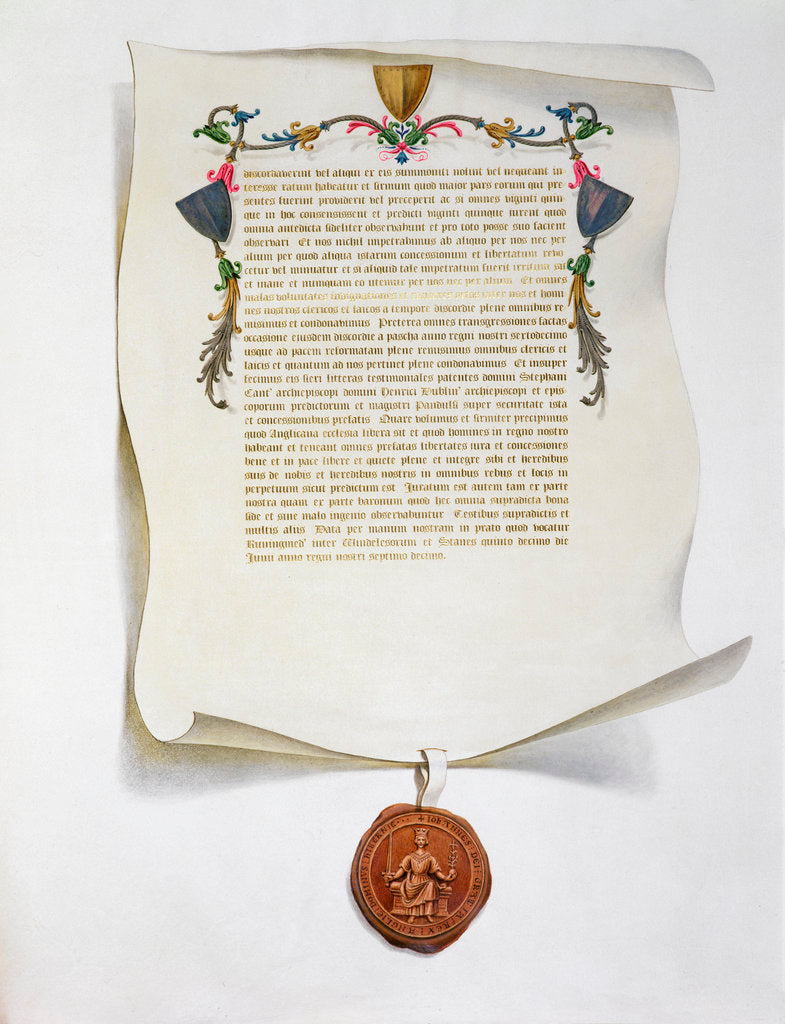 discordaverint vel aliqui ex eis summoniti nolint vel nequeant in-
teresse ratum habeatur et firmum quod maior pars eorum qui pre-
sentes fuerint providerit vel preceperit ac si omnes viginti quin-
que in hoc consensissent et predicti viginti quinque jurent quod
omnia antedicta fideliter observabunt et pro toto posse suo facient
observari Et nos nichil impetrabimus ab aliquo per nos nec per
alium per quod aliqua istarum concessionum et libertatum revo
cetur vel minuatur et si aliquid tale impetratum fuerit irritum sit
et inane et numquam eo utemur per nos nec per alium Et omnes
malas voluntates indignationes et rancores ortas inter nos et homi
nes nostros clericos et laicos a tempore discordie plene omnibus re
misimus et condonavimus Preterea omnes transgressiones factas
occasione ejusdem discordie a pascha anno regni nostri sextodecimo
usque ad pacem reformatam plene remisimus omnibus clericis et
laicis et quantum ad nos pertinet plene condonavimus Et insuper
fecimus eis fieri litteras testimoniales patentes domini Stephani
Cant' archiepiscopi domini Henrici Dublin' archiepiscopi et epis-
coporum predictorum et magistri Pandulfi super securitate ista
et concessionibus prefatis Quare volumus et firmiter precipimus
quod Anglicana ecclesia libera sit et quod homines in regno nostro
habeant et teneant omnes prefatas libertates jura et concessiones
bene et in pace libere et quiete plene et integre sibi et heredibus
suis de nobis et heredibus nostris in omnibus rebus et locis in
perpetuum sicut predictum est Juratum est autem tam ex parte
nostra quam ex parte baronum quod hec omnia supradicta bona
fide et sine malo ingenio observabuntur Testibus supradictis et
multis aliis Data per manum nostram in prato quod vocatur
Runingmed' inter Windelesorum et Stanes quinto decimo die
Junii anno regni nostri septimo decimo.
+ IOHANNES : DEI : GRATIA : REX : ANGLIE : DOMINUS : HIBERNIE